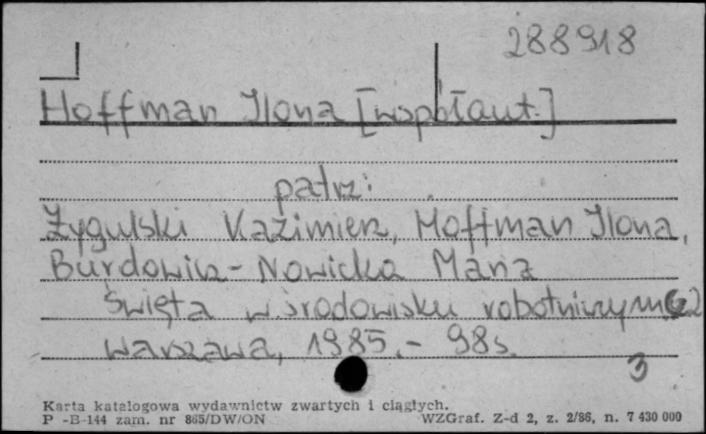 288918
Hoffman Ilona [współaut.]
patrz:
Żygulski Kazimierz, Hoffman Ilona,
Burdowicz-Nowicka Maria
Święta w środowisku robotniczym
Warszawa, 1985.- 98s.
3
Karta katalogowa wydawnictw zwartych i ciągłych.
P -B-144 zam. nr 865/DW/ON WZGraf. Z-d 2, z. 2/86, n. 7 430 000